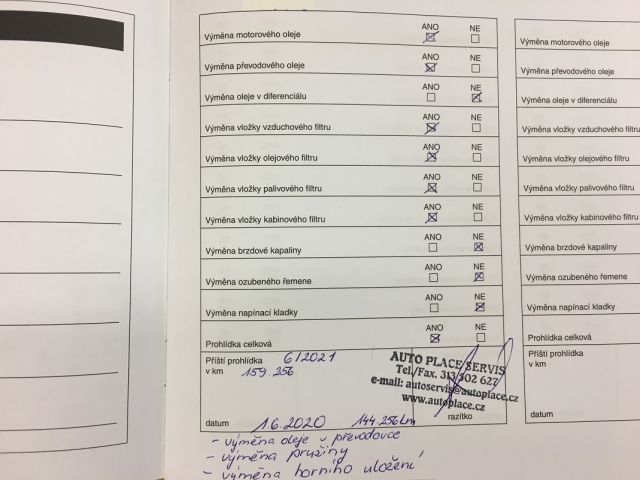 ANO NE
Výměna motorového oleje
ANO NE
Výměna převodového oleje
ANO NE
Výměna oleje v diferenciálu
ANO NE
Výměna vložky vzduchového filtru
ANO NE
Výměna vložky olejového filtru
ANO NE
Výměna vložky palivového filtru
ANO NE
Výměna vložky kabinového filtru
ANO NE
Výměna brzdové kapaliny
ANO NE
Výměna ozubeného řemene
ANO NE
Výměna napínací kladky
ANO NE
Prohlídka celková
Příští prohlídka 6/2021
v km 159 256
AUTO PLACE SERVIS
Tel./Fax. 313 302 627
e-mail: autoservis@autoplace.cz
www.autoplace.cz
datum 1.6.2020 144.256km razítko
- výměna oleje v převodovce
- výměna pružiny
- výměna horního uložení
Výměna motorového oleje
Výměna převodového oleje
Výměna oleje v diferenciálu
Výměna vložky vzduchového filtru
Výměna vložky olejového filtru
Výměna vložky palivového filtru
Výměna vložky kabinového filtru
Výměna brzdové kapaliny
Výměna ozubeného řemene
Výměna napínací kladky
Prohlídka celková
Příští prohlídka
v km
datum